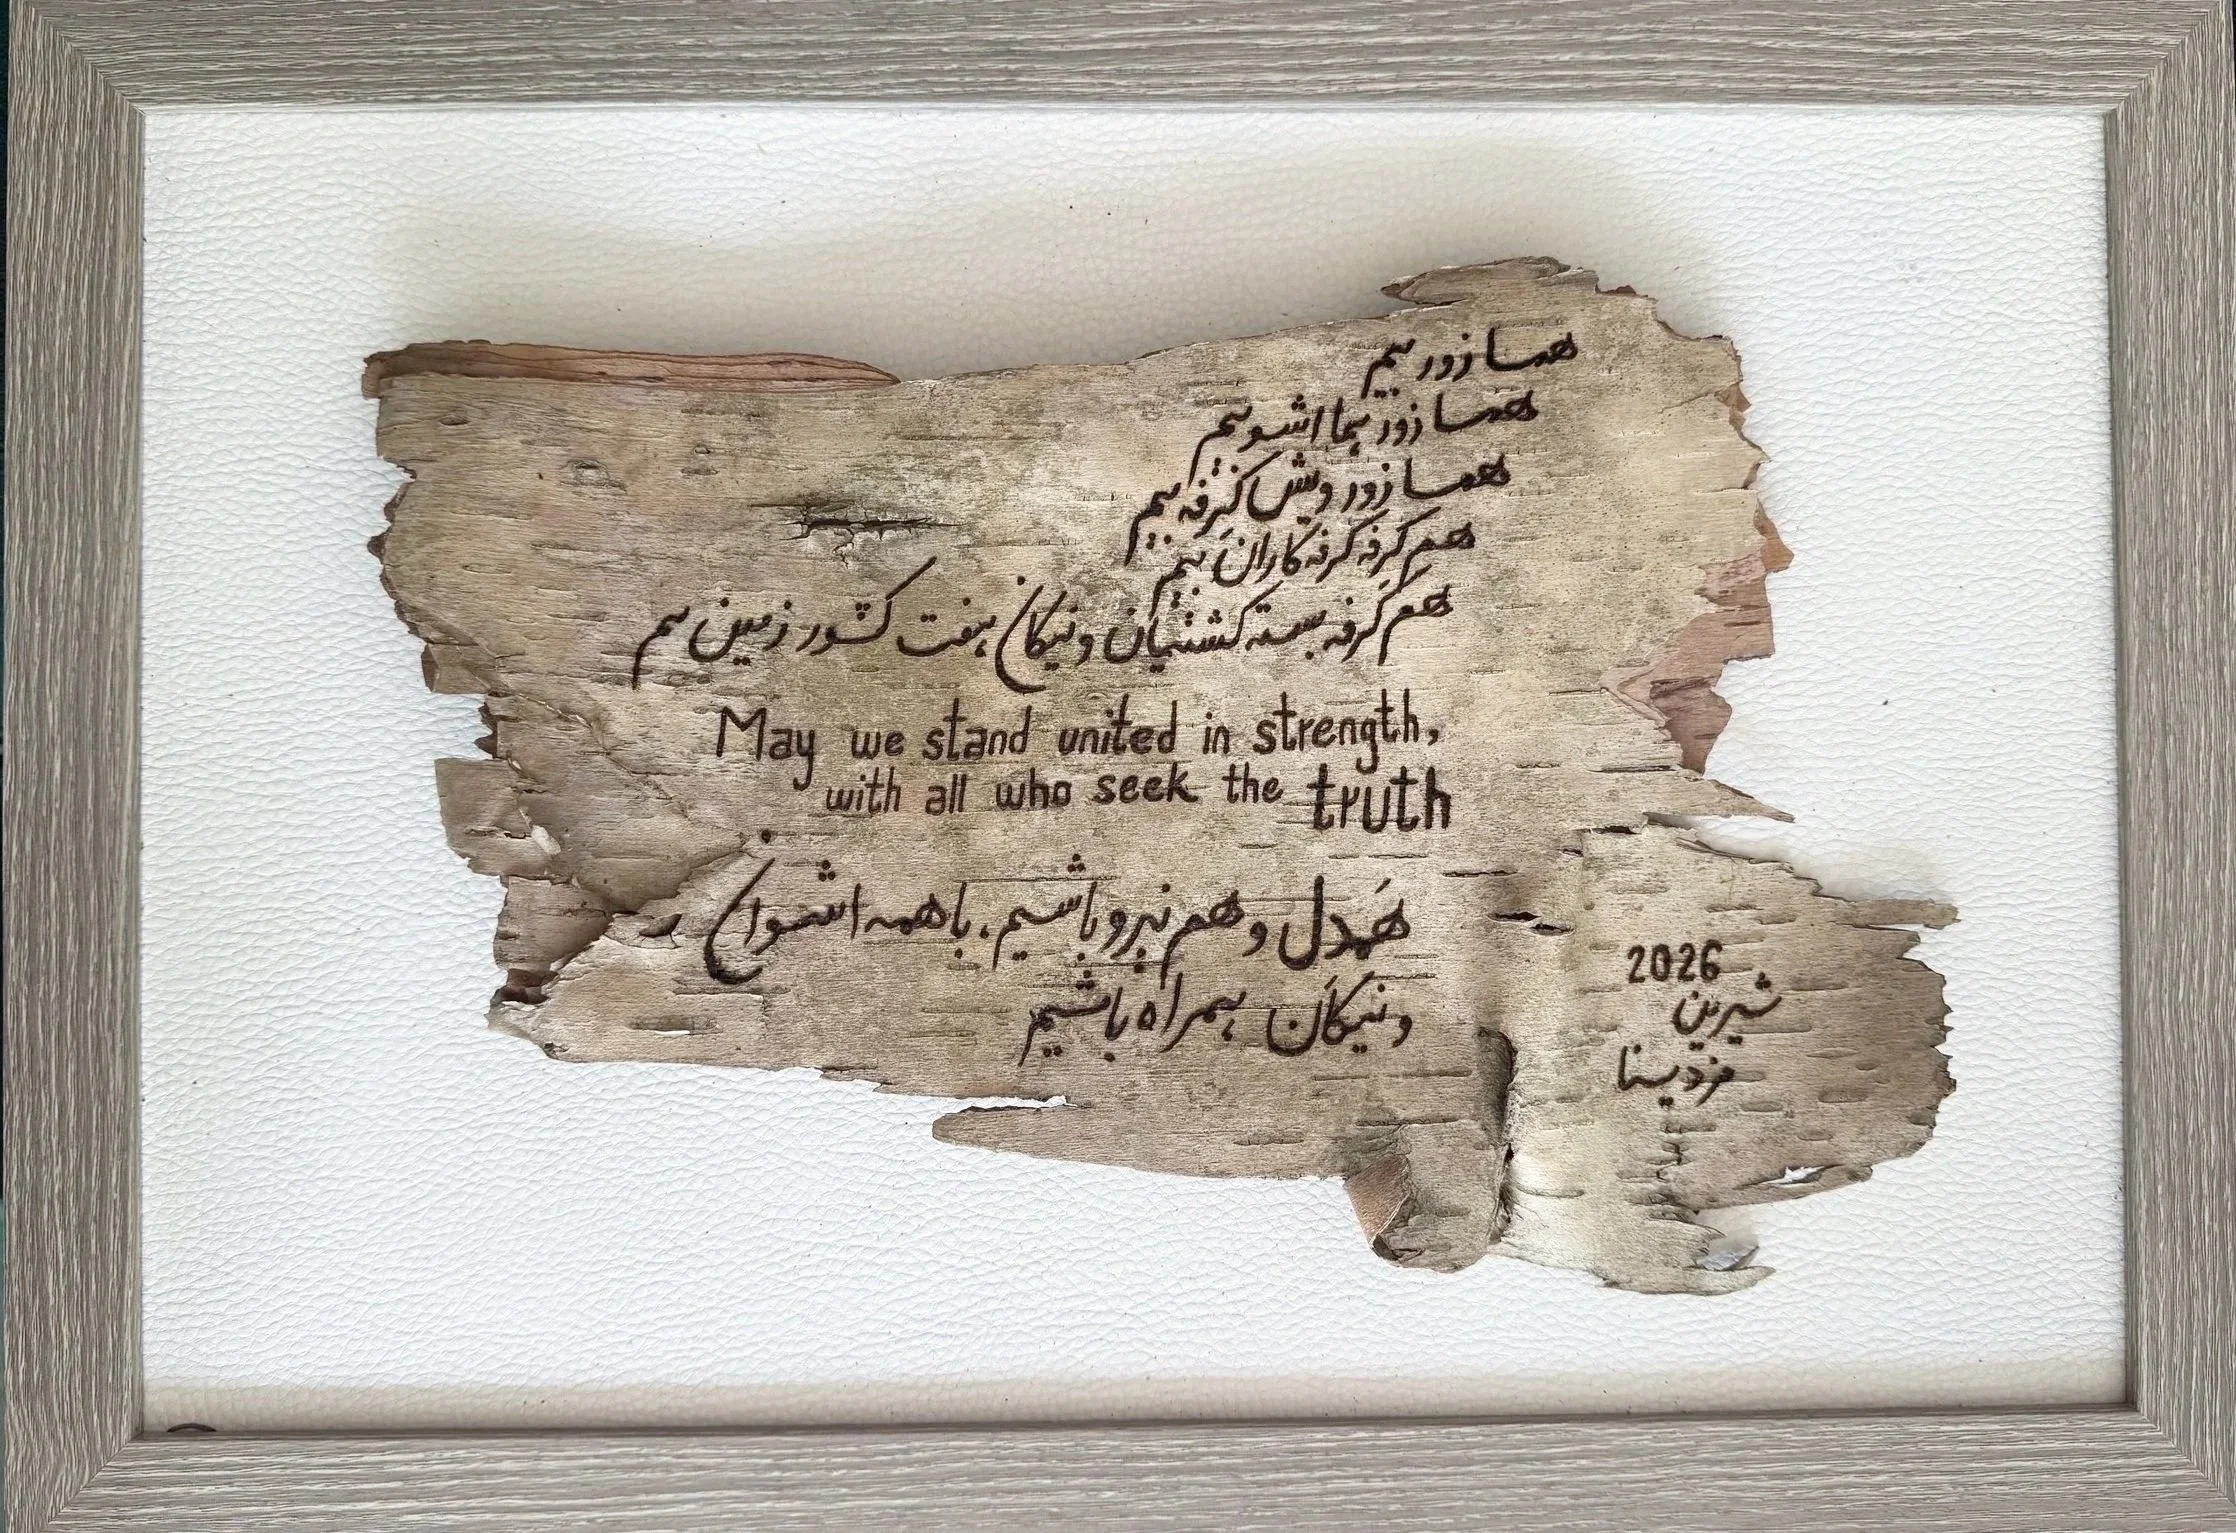 همسا زور بیم
همسا زور هما اشو بیم
همسا زور ویش کِرفه بیم
هم کرفه کرفه کاران بیم
هَم کِرفه بسته کشتیان و نیکان هفت کشور زمین بیم
May we stand united in strength,
with all who seek the truth
هَمدل و هم نیرو باشیم، با همه اشوان
و نیکان همراه باشیم
2026
شیرین
مزدیسنا